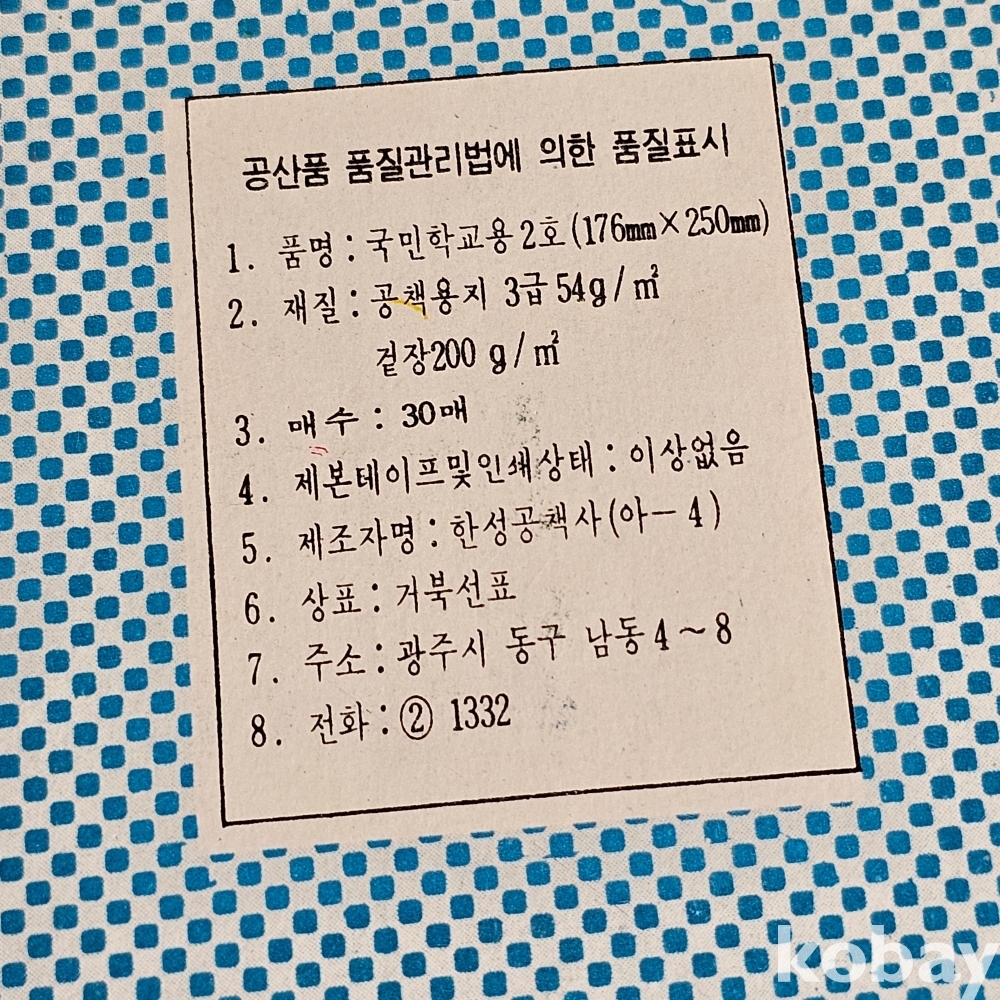 공산품 품질관리법에 의한 품질표시
1. 품명 : 국민학교용 2호 (176㎜×250㎜)
2. 재질 : 공책용지 3급 54g/㎡
겉장200 g/㎡
3. 매수 : 30매
4. 제본테이프및인쇄상태 : 이상없음
5. 제조자명 : 한성공책사(아-4)
6. 상표 : 거북선표
7. 주소 : 광주시 동구 남동 4~8
8. 전화 : ② 1332
kobay